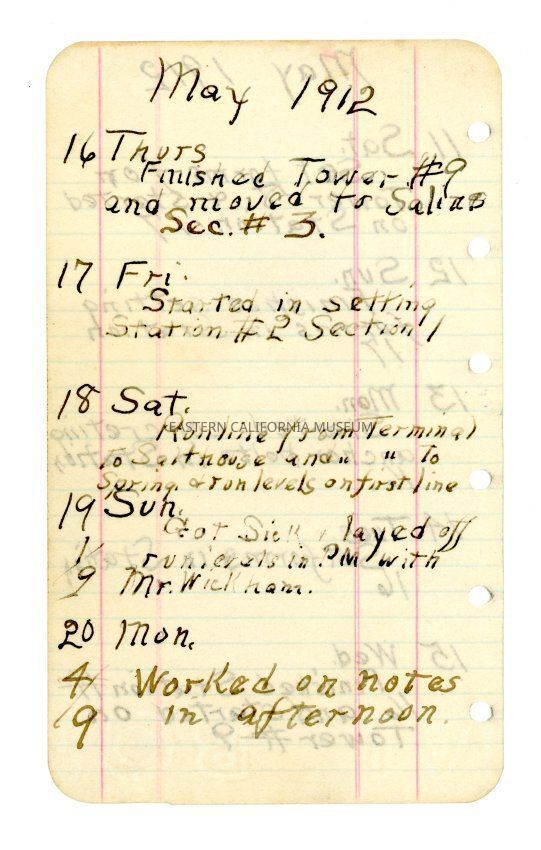 May 1912
16 Thurs
Finished Tower #9
and moved to Salinas
Sec. # 3.
17 Fri.
Started in setting
Station # 2 Section 1
18 Sat.
EASTERN CALIFORNIA MUSEUM
Run line from Terminal
To Salthouse and " " to
Spring & run levels on first line
19 Sun.
Got Sick & layed off
1/9 run levels in PM with
Mr. Wickham.
20 Mon.
4/9 Worked on notes
in afternoon.